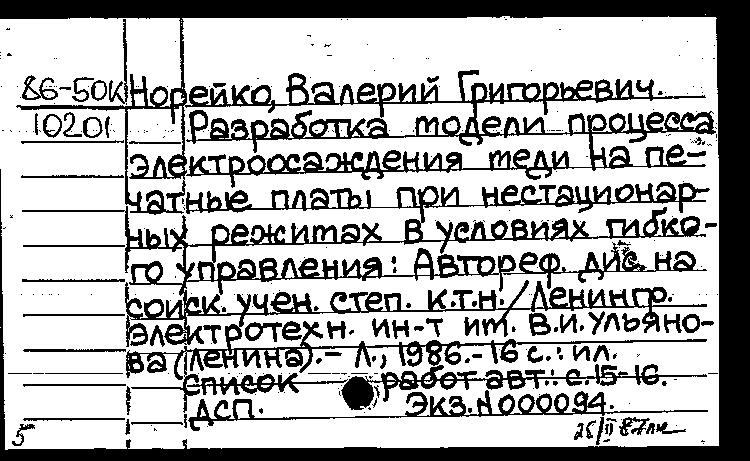 86-50к Норейко, Валерий Григорьевич.
10201 Разработка модели процесса
электроосаждения меди на пе-
чатные платы при нестационар-
ных режимах в условиях гибко-
го управления: Автореф. дис. на
соиск. учен. степ. к.т.н. / Ленингр.
электротехн. ин-т им. В.И. Ульяно-
ва (Ленина). - Л., 1986. - 16 с.: ил.
Список работ авт.: с. 15-16.
ДСП. Экз. N 000094.
5 25/II 87